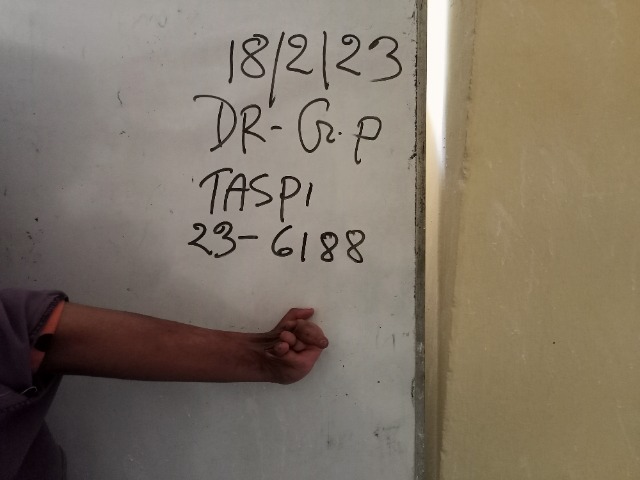 18/2/23
DR- G.P
TASPI
23-6188